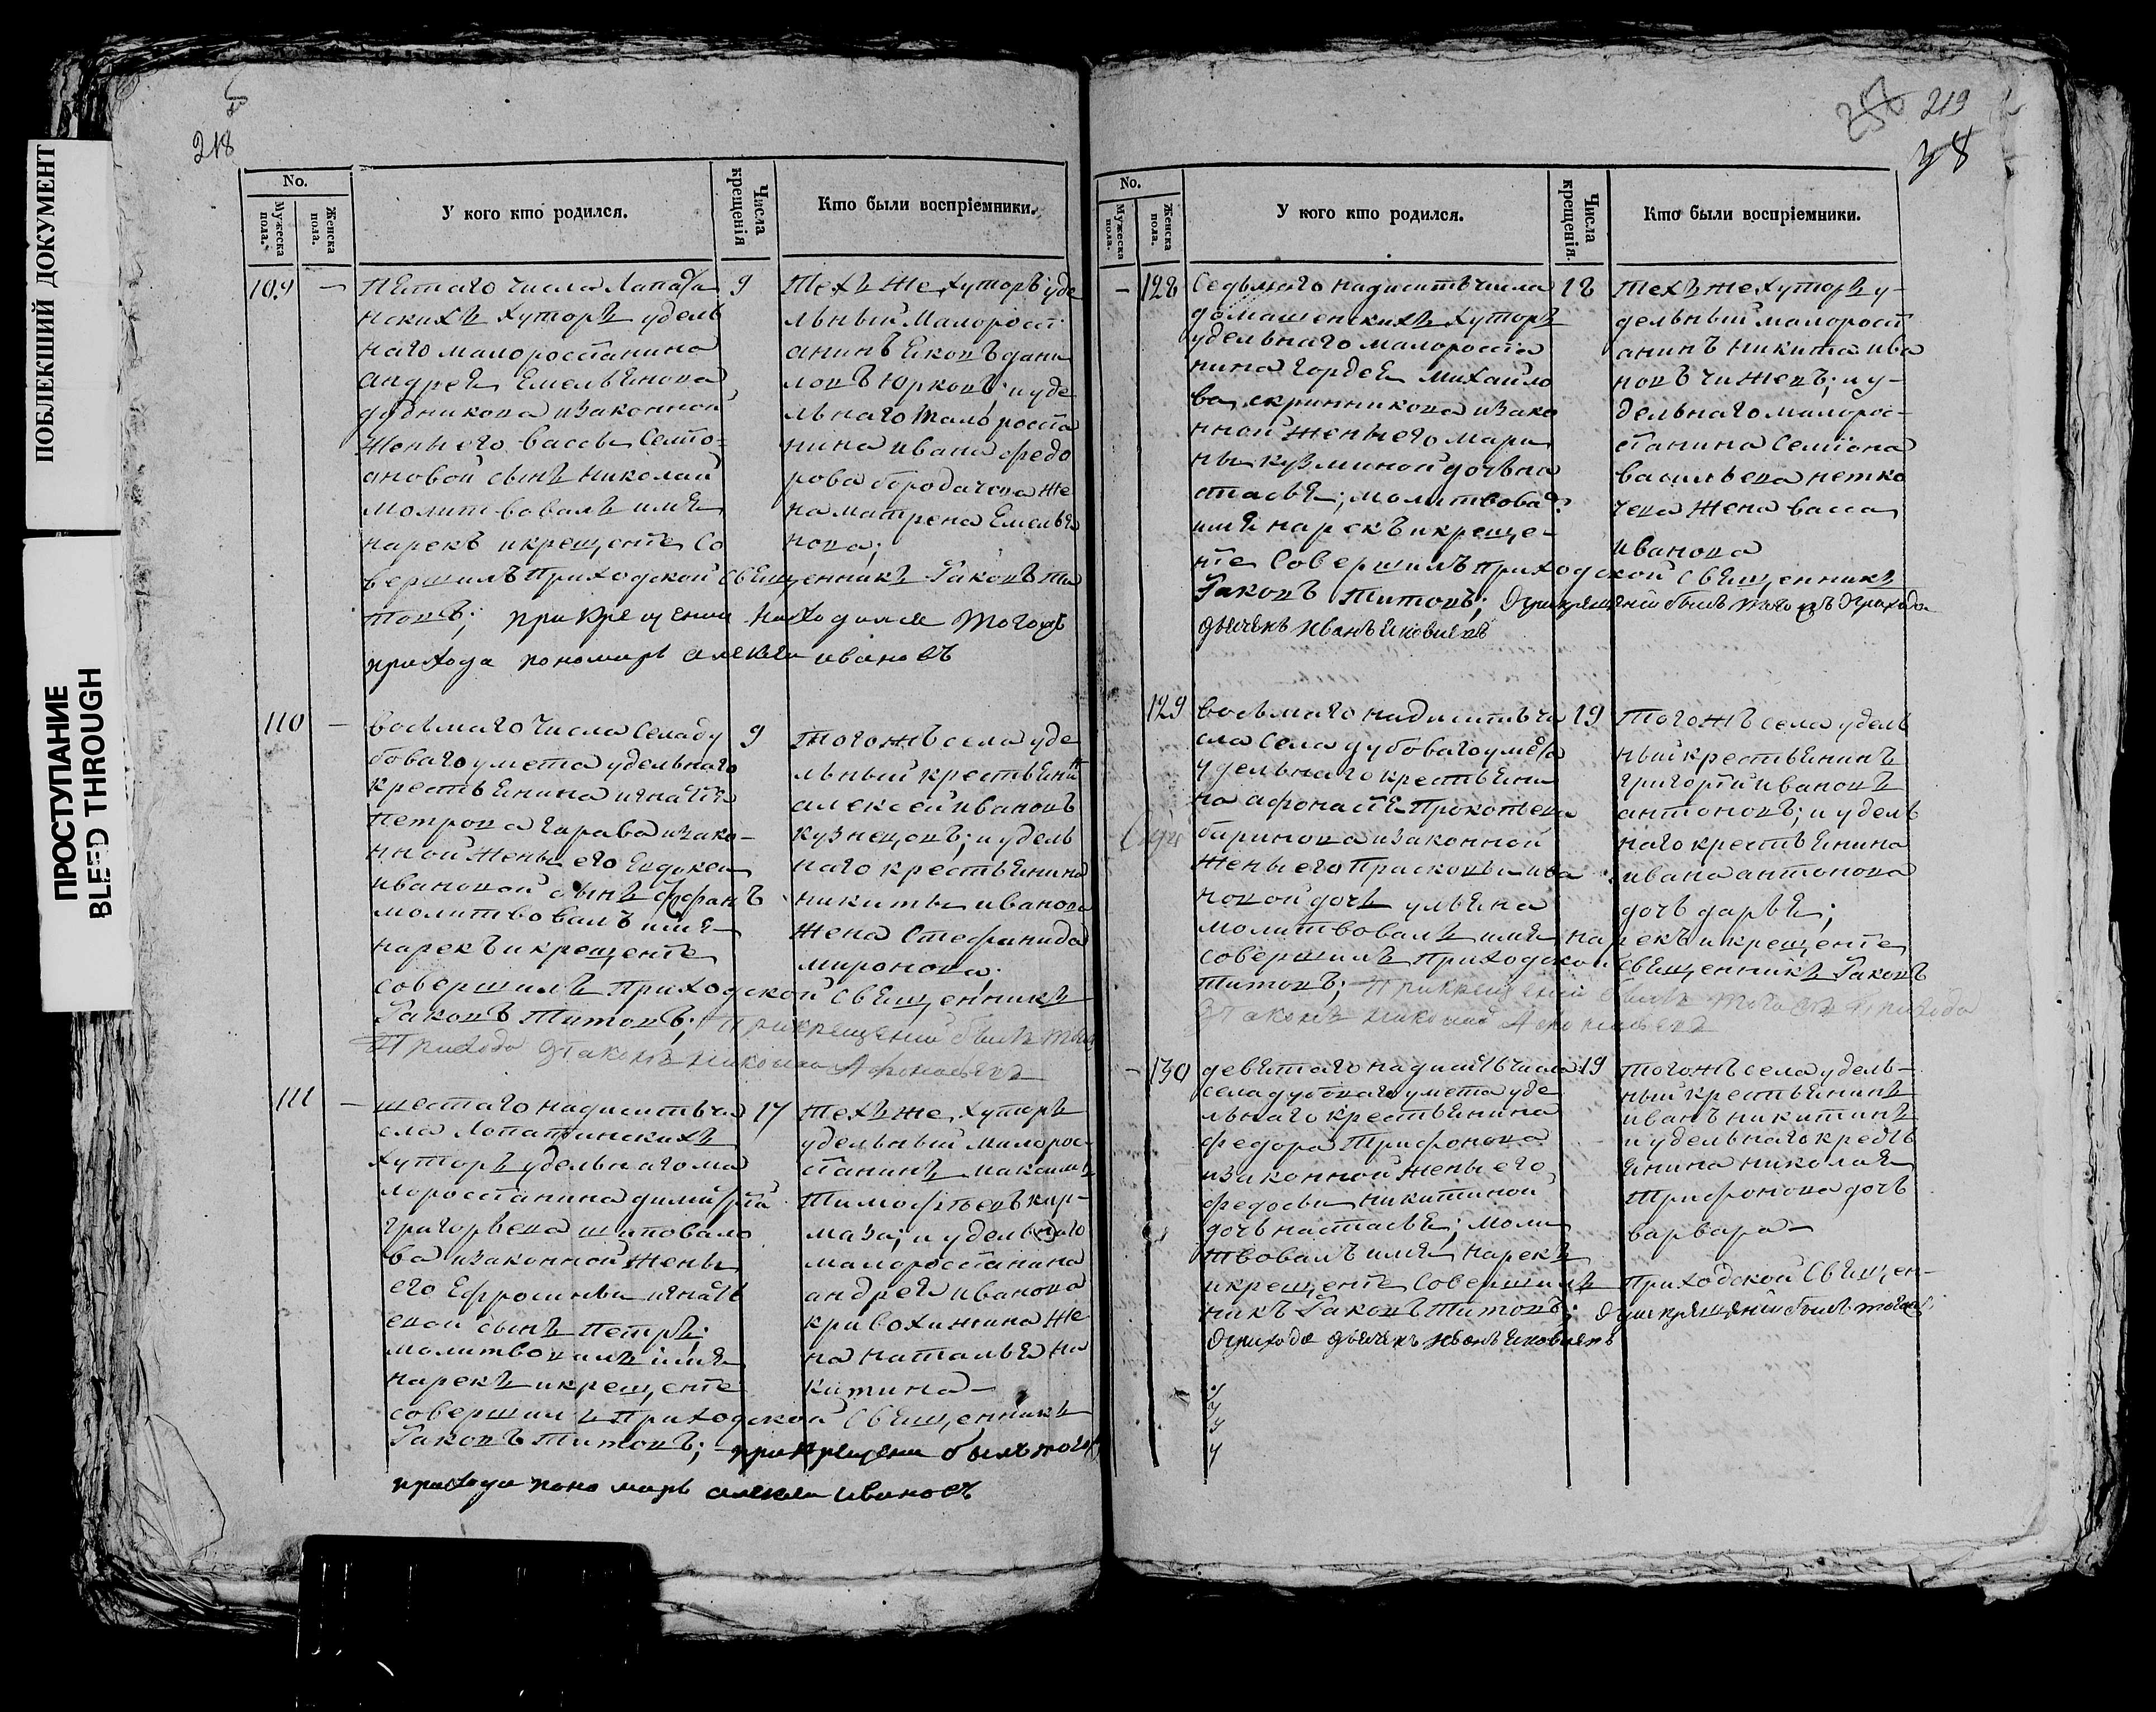 ПОБЛЕКШИЙ ДОКУМЕНТ
ПРОСТУПАНИЕ
BLEED THROUGH
218
No.
Мужеска пола.
Женска пола.
У кого кто родился.
Числа крещенія
Кто были воспріемники.
109 —
пятаго числа Лапати
нскихъ хуторъ удель
наго малоросстанина
андрея Емельянова
дудникова изаконной
жены его вассы Семио
ановой сынъ николай
молитвовалъ имя
нарекъ икрещенте Со
вершилъ приходской священникъ Гаковъ Ти
товъ; при крещении находился тогожъ
прихода пономарь алексеи ивановъ
9
техъ же хуторъ уде
льный Малоросст
анинъ яковъ дани
ловъ юрковъ; и уде
льнаго малоросста
нина ивана федо
рова бородачева же
на матрена Емелья
нова;
110 —
восьмаго числа Села ду
боваго умета удельнаго
крестьянина игнатья
петрова гарава изако-
нной жены его Евдокеи
ивановой сынъ стефанъ
молитвовалъ имя
нарекъ икрещенте
совершилъ приходской священникъ
Гаковъ Титовъ; При крещении былъ тогожъ
Прихода дтаконъ николаи Афонасьевъ
9
тогожъ села уде
льный крестьянинъ
алексей ивановъ
кузнецовъ; и удель
наго крестьянина
никиты иванова
жена Стефанида
миронова.
111 —
шестаго надцить чи
сла Лопатинскихъ
хуторъ удельнаго ма
лоросстанина димитртя
григорьева шаповало
ва изаконной жены
его Ефросиньи игнать
евой сынъ петръ;
молитвовалъ имя
нарекъ икрещенте
совершилъ приходской священникъ
Гаковъ Титовъ; при крещении былъ тогожъ
прихода пономарь алексеи ивановъ
17
техъ же хуторъ
удельный малорос
станинъ максимъ
Тимофтевъ кар-
маза; и удельнаго
малоросстанина
андрея иванова
кривохижина же
на наталья ни
китина —
219
38
No.
Мужеска пола.
Женска пола.
У кого кто родился.
Числа крещенія.
Кто были воспріемники.
— 128
Седьмаго надцить числа
домашенскихъ хуторъ
удельнаго малоросста
нина гордея михайло
ва скринникова изако
нной жены его мари
ны кузминой дочь на
стасья; молитвовалъ
имя нарекъ икреще-
нте Совершилъ приходской священникъ
Гаковъ Титовъ; при крещении былъ тогожъ прихода
дьячекъ иванъ яковлевъ
18
техъ же хуторъ у-
дельный малоросст
анинъ никита ива
новъ чижевъ; и у-
дельнаго малорос-
станина Семиона
васильева нетко
чева жена васса
иванова
129
восьмаго надцить чи
сла села дубоваго умета
удельнаго крестьяни
на афонастя прокопьева
баринова изаконной
жены его прасковьи ива
новой дочь ульяна
молитвовалъ имя нарекъ икрещенте
совершилъ приходской священникъ Гаковъ
Титовъ; При крещении былъ тогожъ прихода
дтаконъ николай Афонасьевъ
19
тогожъ села удель
ный крестьянинъ
григортй ивановъ
антоновъ; и удель
наго крестьянина
ивана антонова
дочь дарья;
— 130
девятаго надцить числа
села дубоваго умета уде
льнаго крестьянина
федора Трифонова
изаконной жены его
федосьи никитиной
дочь настасья; моли
твовалъ имя нарекъ
икрещенте Совершилъ приходской Священ-
никъ Гаковъ Титовъ; при крещении былъ тогожъ
прихода дьячекъ иванъ яковлевъ
19
тогожъ села удель-
ный крестьянинъ
иванъ никитинъ
и удельнаго кресть
янина николая
Трифонова дочь
варвара —